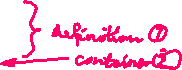 definition ①
container ②